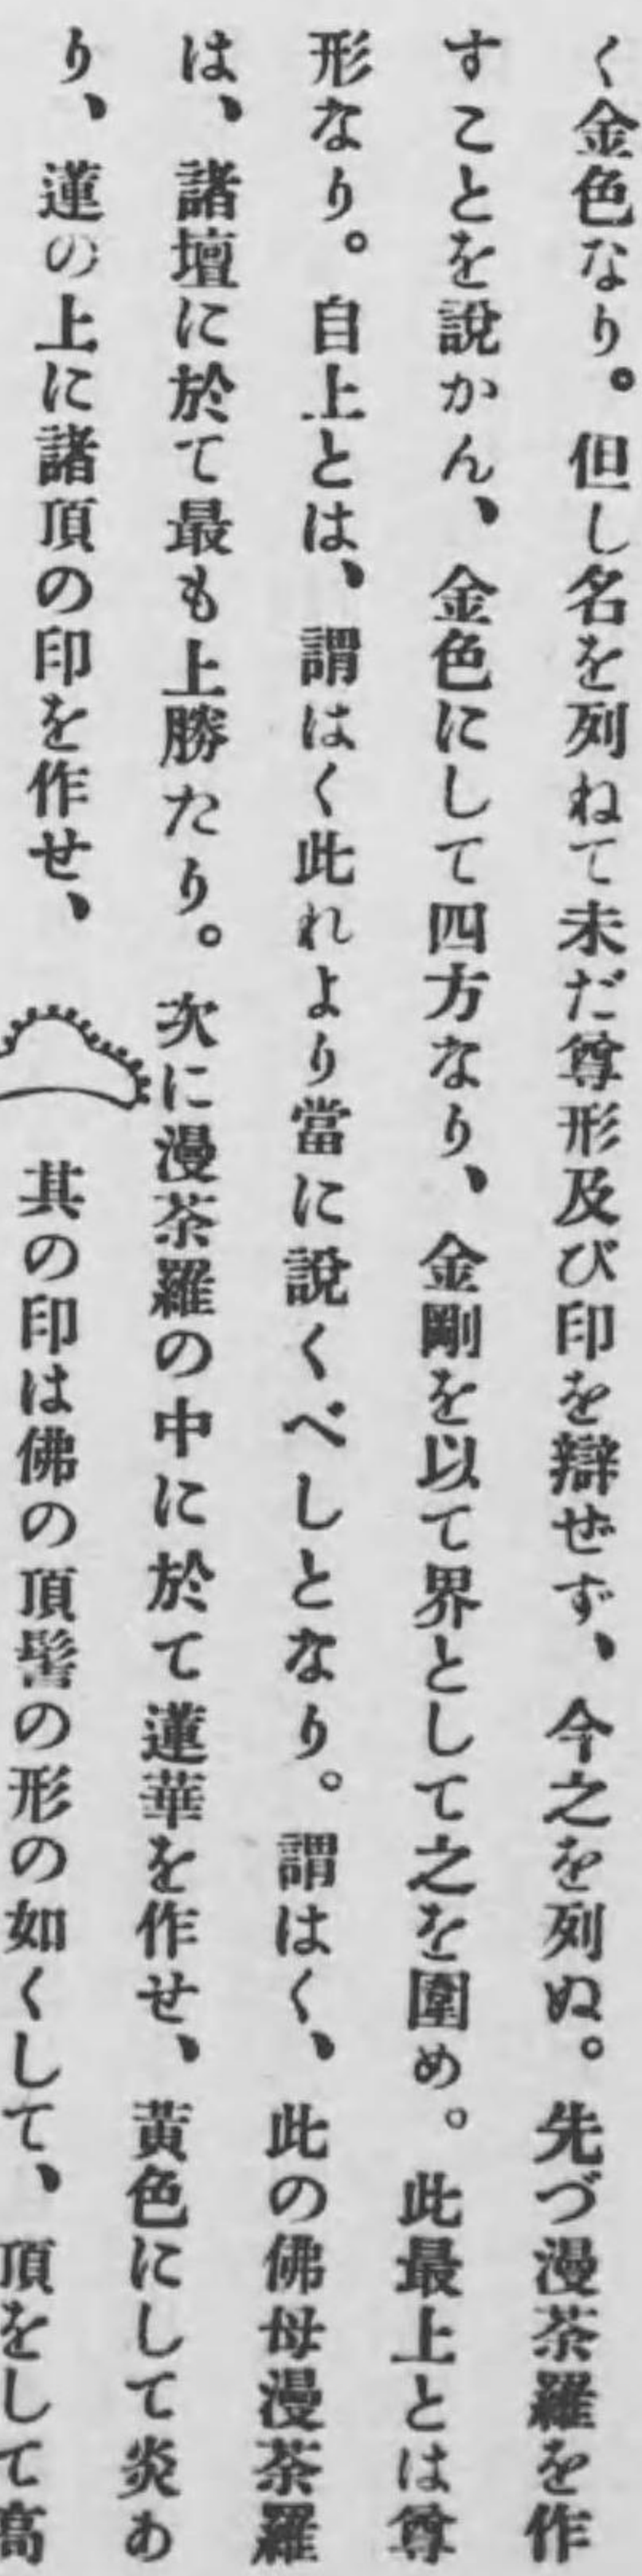 く金色なり。但し名を列ねて未だ尊形及び印を辯ぜず、今之を列ぬ。先づ漫荼羅を作
すことを說かん、金色にして四方なり、金剛を以て界として之を圍め。此最上とは尊
形なり。自上とは、謂はく此れより當に說くべしとなり。謂はく、此の佛母漫荼羅
は、諸壇に於て最も上勝たり。次に漫荼羅の中に於て蓮華を作せ、黃色にして炎あ
り、蓮の上に諸頂の印を作せ、其の印は佛の頂髻の形の如くして、頂をして高